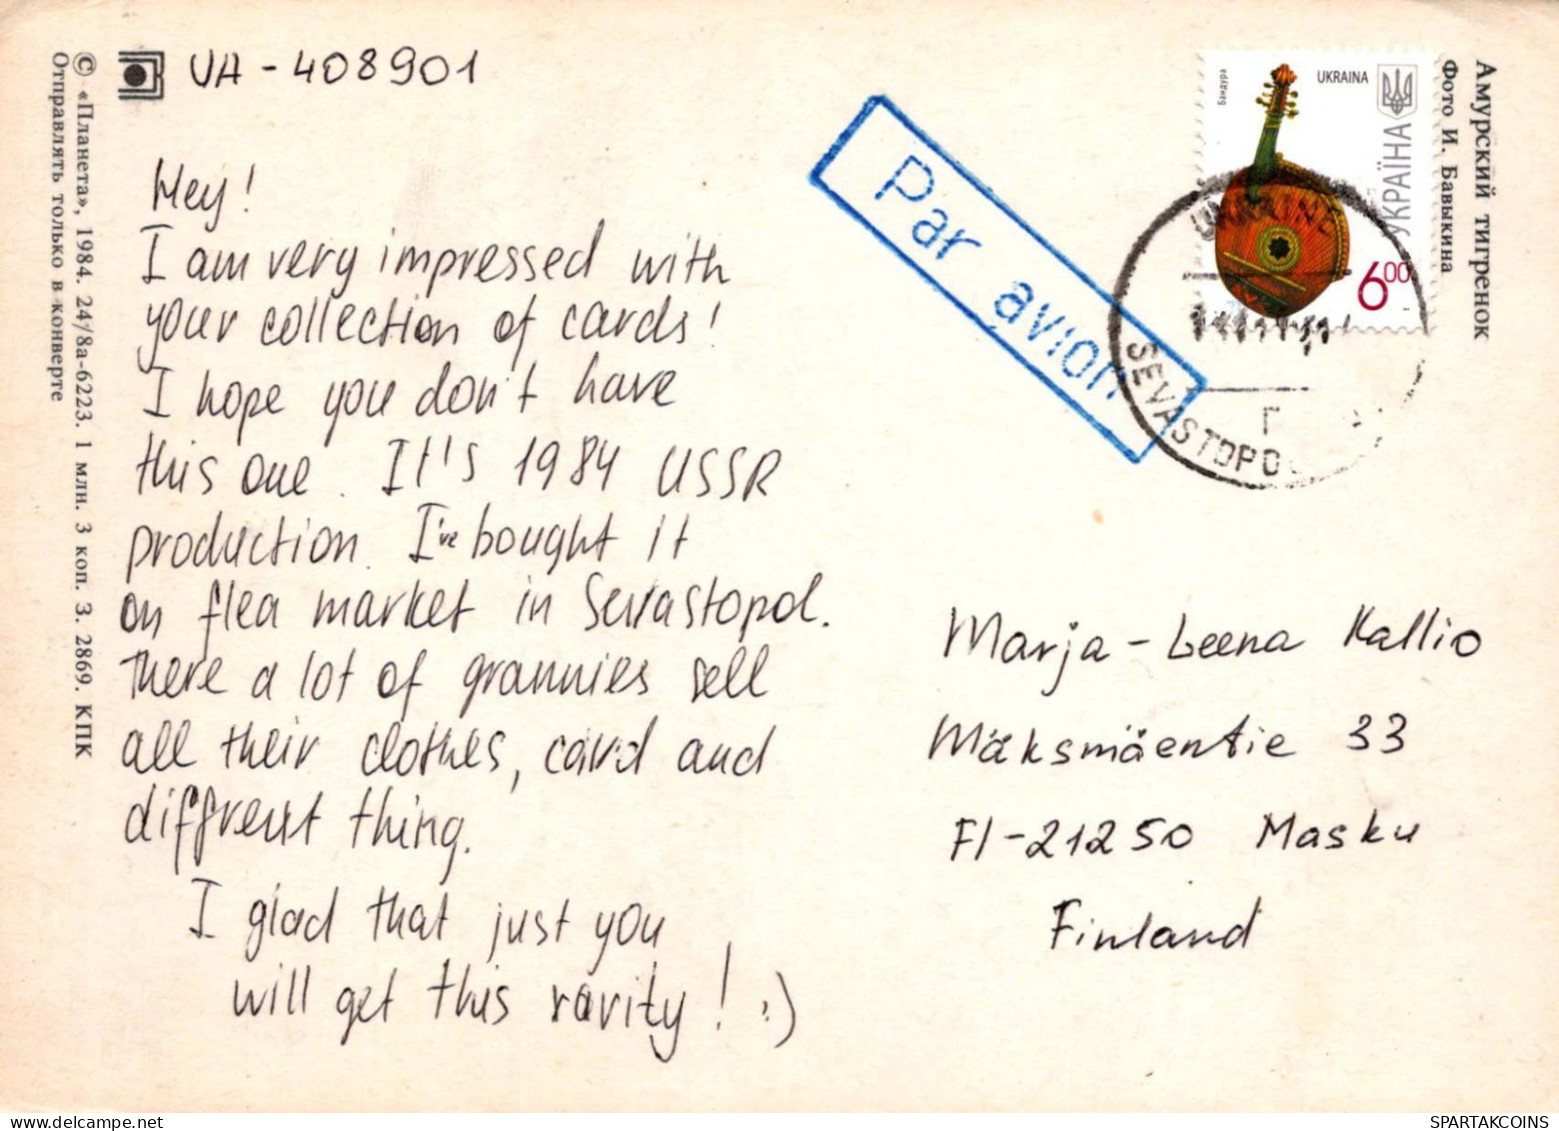 UA-408901
Hey!
I am very impressed with
your collection of cards!
I hope you don't have
this one. It's 1984 USSR
production. I've bought it
on flea market in Sevastopol.
There a lot of grannies sell
all their clothes, card and
different thing.
I glad that just you
will get this rarity! :)
Marja-Leena Kallio
Mäksmäentie 33
FI-21250 Masku
Finland
Par avion
Бандура
UKRAINA
УКРАЇНА
6.00
UKRAINE
SEVASTOPO
Г
Амурский тигренок
Фото И. Бавыкина
© «Планета», 1984. 24/8а-6223. 1 млн. 3 коп. З. 2869. КПК
Отправлять только в конверте
SPARTAKCOINS